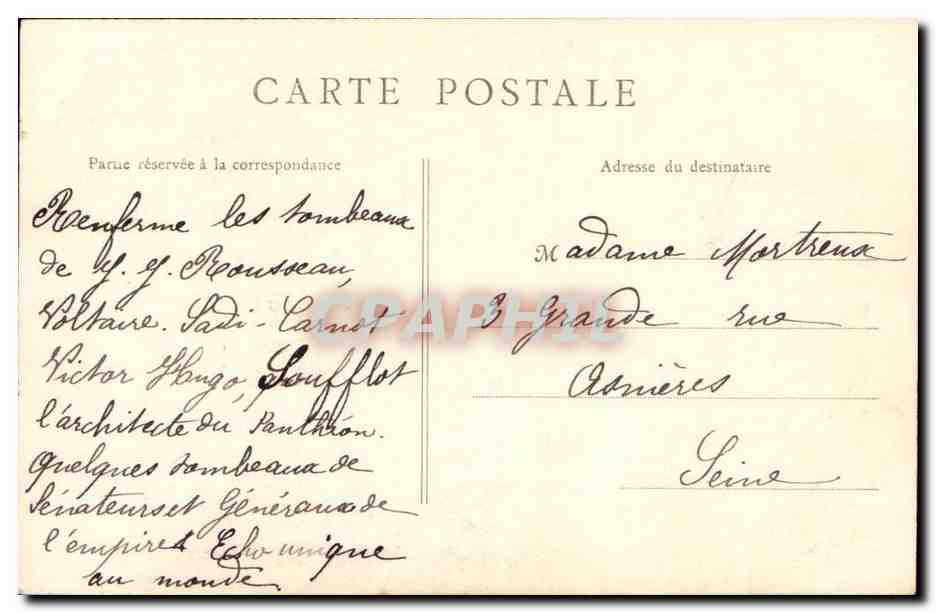 CARTE POSTALE
Partie réservée à la correspondance
Renferme les tombeaux
de J. J. Rousseau,
Voltaire. Sadi-Carnot
Victor Hugo, Soufflot
l'architecte du Panthéon.
Quelques tombeaux de
Sénateurs et Généraux de
l'empire. Echo unique
au monde
Adresse du destinataire
Madame Mortreux
3 Grande rue
Asnières
Seine
CPAPHIL